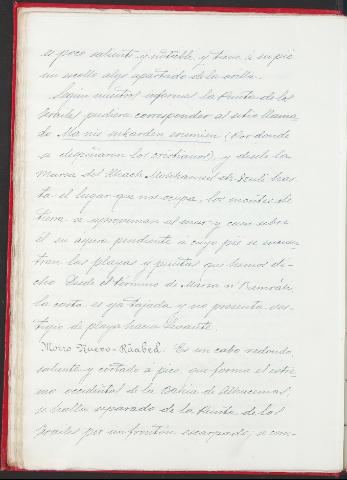 es poco saliente y notable, y tiene á su pié
un escollo algo apartado de la orilla.
Segun nuestros informes la Punta de los
Frailes pudiera corresponder al sitio llama-
do Ma nis inkarden (Por donde
se despeñaron los cristianos), y desde la
Marsa del has-
ta el lugar que nos ocupa, los montes de
tierra se aproximan al mar y caen sobre
él su aguda pendiente a cuyo pié se encuen-
tran las playas y puntas que hemos di-
cho. Desde el término de Marsa
la costa es ya tajada y no presenta ves-
tigio de playa hacia Levante.
Morro Nuevo-Rüabed. Es un cabo redondo,
saliente y cortado á pico, que forma el estre-
mo occidental de la Bahia de Alhucemas;
se halla separado de la Punta de los
Frailes por un frontón escarpado; se con-